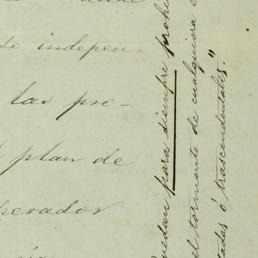 do indepen-
las pro-
plan de
perador
quedan para siempre prohi
el tormento de cualquiera e
tales ó trascendentales."